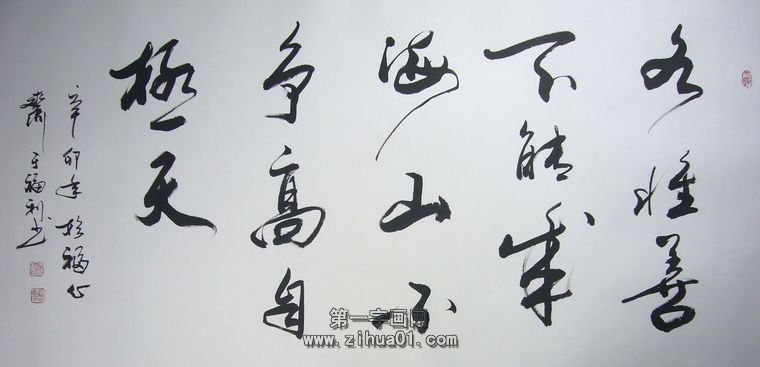 水惟善
下能成
海山不
争高自
極天
辛卯年於福心
齋于福利书
第一字画网
www.zihua01.com